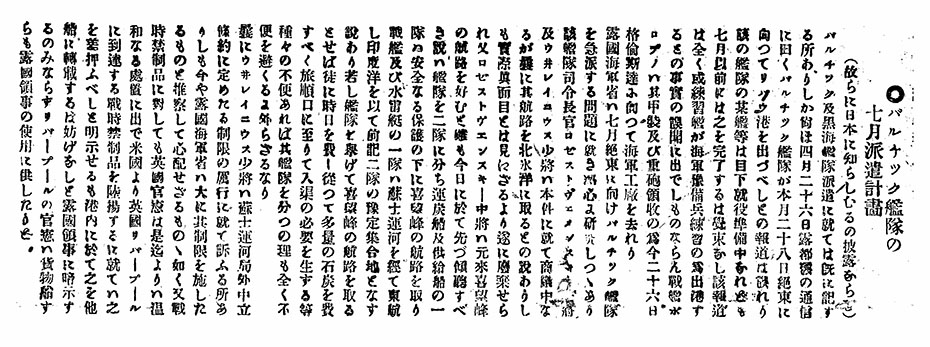 ●バルチック艦隊の
七月派遣計畫
(故らに日本に知らしむるの披露をらむ)
バルチック及黒海艦隊派遣に就ては既に記す
る所ありしか尚ほ四月二十六日露都の通信
に曰くバルチック艦隊が本月二十八日絶東に
向つてリヴウ港を出づべしとの報道は誤れり
該の艦隊の某艦等は目下就役準備中なれども
七月以前には之を完了するは覺束なし該報道
は全く或練習艦が海軍豫備兵練習の爲出港す
るとの事實の誤聞に出でしものならん戰艦ボ
ロヂノハ其甲裝及び重砲領收の爲今二十六日
格倫斯達に向つて海軍工廠を去れり
露國海軍省ハ七月絶東に向けバルチック艦隊
を急派する問題に就き熱心よ研究しつゝあり
該艦隊司令長官ロゼストヴェンスキー少將
及ウ井レイニウス少將ハ本件に就て商議中な
るが曩に其航路を北氷洋に取るとの説ありし
も實際眞面目とは見にざるより遂に廢棄せら
れ又ロゼストヴェンスキー中將ハ元來喜望峰
の航路を好むと雖も今日に於て先づ傾聽すべ
き説ハ艦隊を二隊に分ち運炭船及供給船の一
隊ハ安全なる保護の下に喜望峰の航路を取り
戰艦及び水雷艇の一隊ハ蘇士運河を經て東航
し印度洋を以て前記二隊の豫定集合地となす
説あり若し艦隊を擧げて喜望峰の航路を取る
とせば徒に時日を費し從つて多量の石炭を費
すべく旅順口に至りて入渠の必要を生ずる等
種々の不便あれば其艦隊を分つの理も全く不
便を避くるより外ならざるなり
曩にウ井レイニウス少將ハ蘇士運河局外中立
條約に定めたる制限の勵行に就て訴ふる所あ
りしも今や露國海軍省ハ大に其制限を施した
るものと推察して心配せざるものゝ如く又戰
時禁制品に對しても英國官憲は是迄よりハ温
和なる處置に出で米國より英國リバープール
に到達する戰時禁制品を陸揚するに就てハ之
を差押ふべしと明示せるも港内に於て之を他
船に轉載するは妨げなしと露國領事に暗示す
るのみならずリバープールの官憲ハ貨物船す
らも露國領事の使用に供したりと。